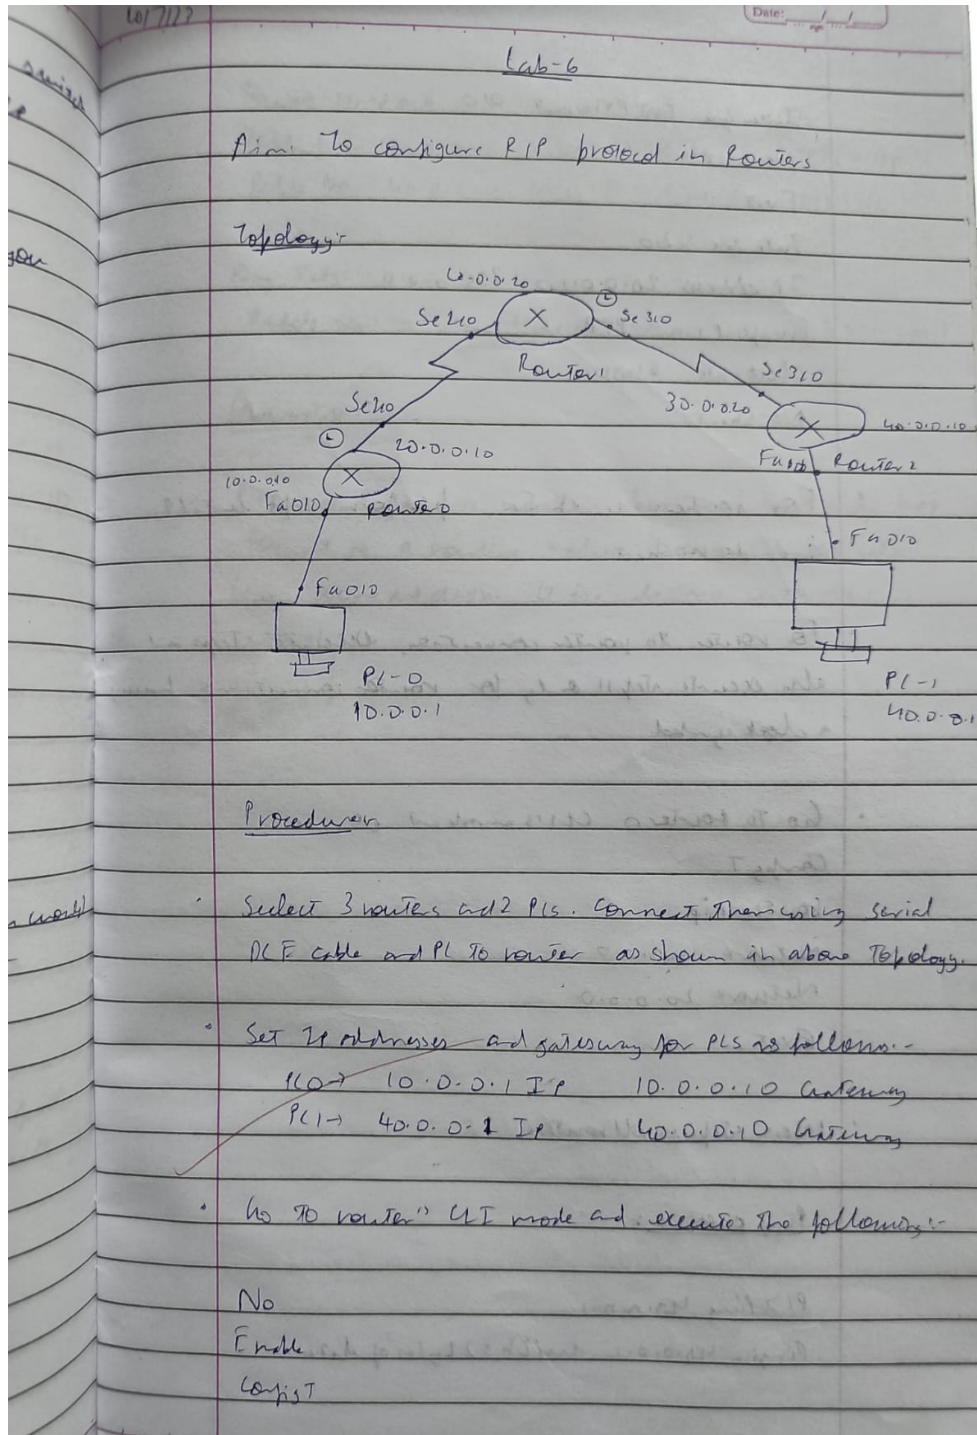 10/7/23
Date:
Lab-6
Aim: To configure RIP protocol in Routers
Topology:-
20
Se2/0 Se3/0
Router1
Se3/0
Se2/0 30.0.0.20
40.0.0.10
20.0.0.10
10.0.0.10 Router2
Fa0/0 Router0
Fa0/0
Fa0/0
PC-0 PC-1
10.0.0.1 40.0.0.1
Procedure:-
Select 3 routers and 2 PCs. Connect them using serial
DCE cable and PC to router as shown in above Topology.
Set IP addresses and gateway for PCs as follows:-
PC0→ 10.0.0.1 IP 10.0.0.10 Gateway
PC1→ 40.0.0.1 IP 40.0.0.10 Gateway
Go to router's CLI mode and execute the following:-
No
Enable
Config T